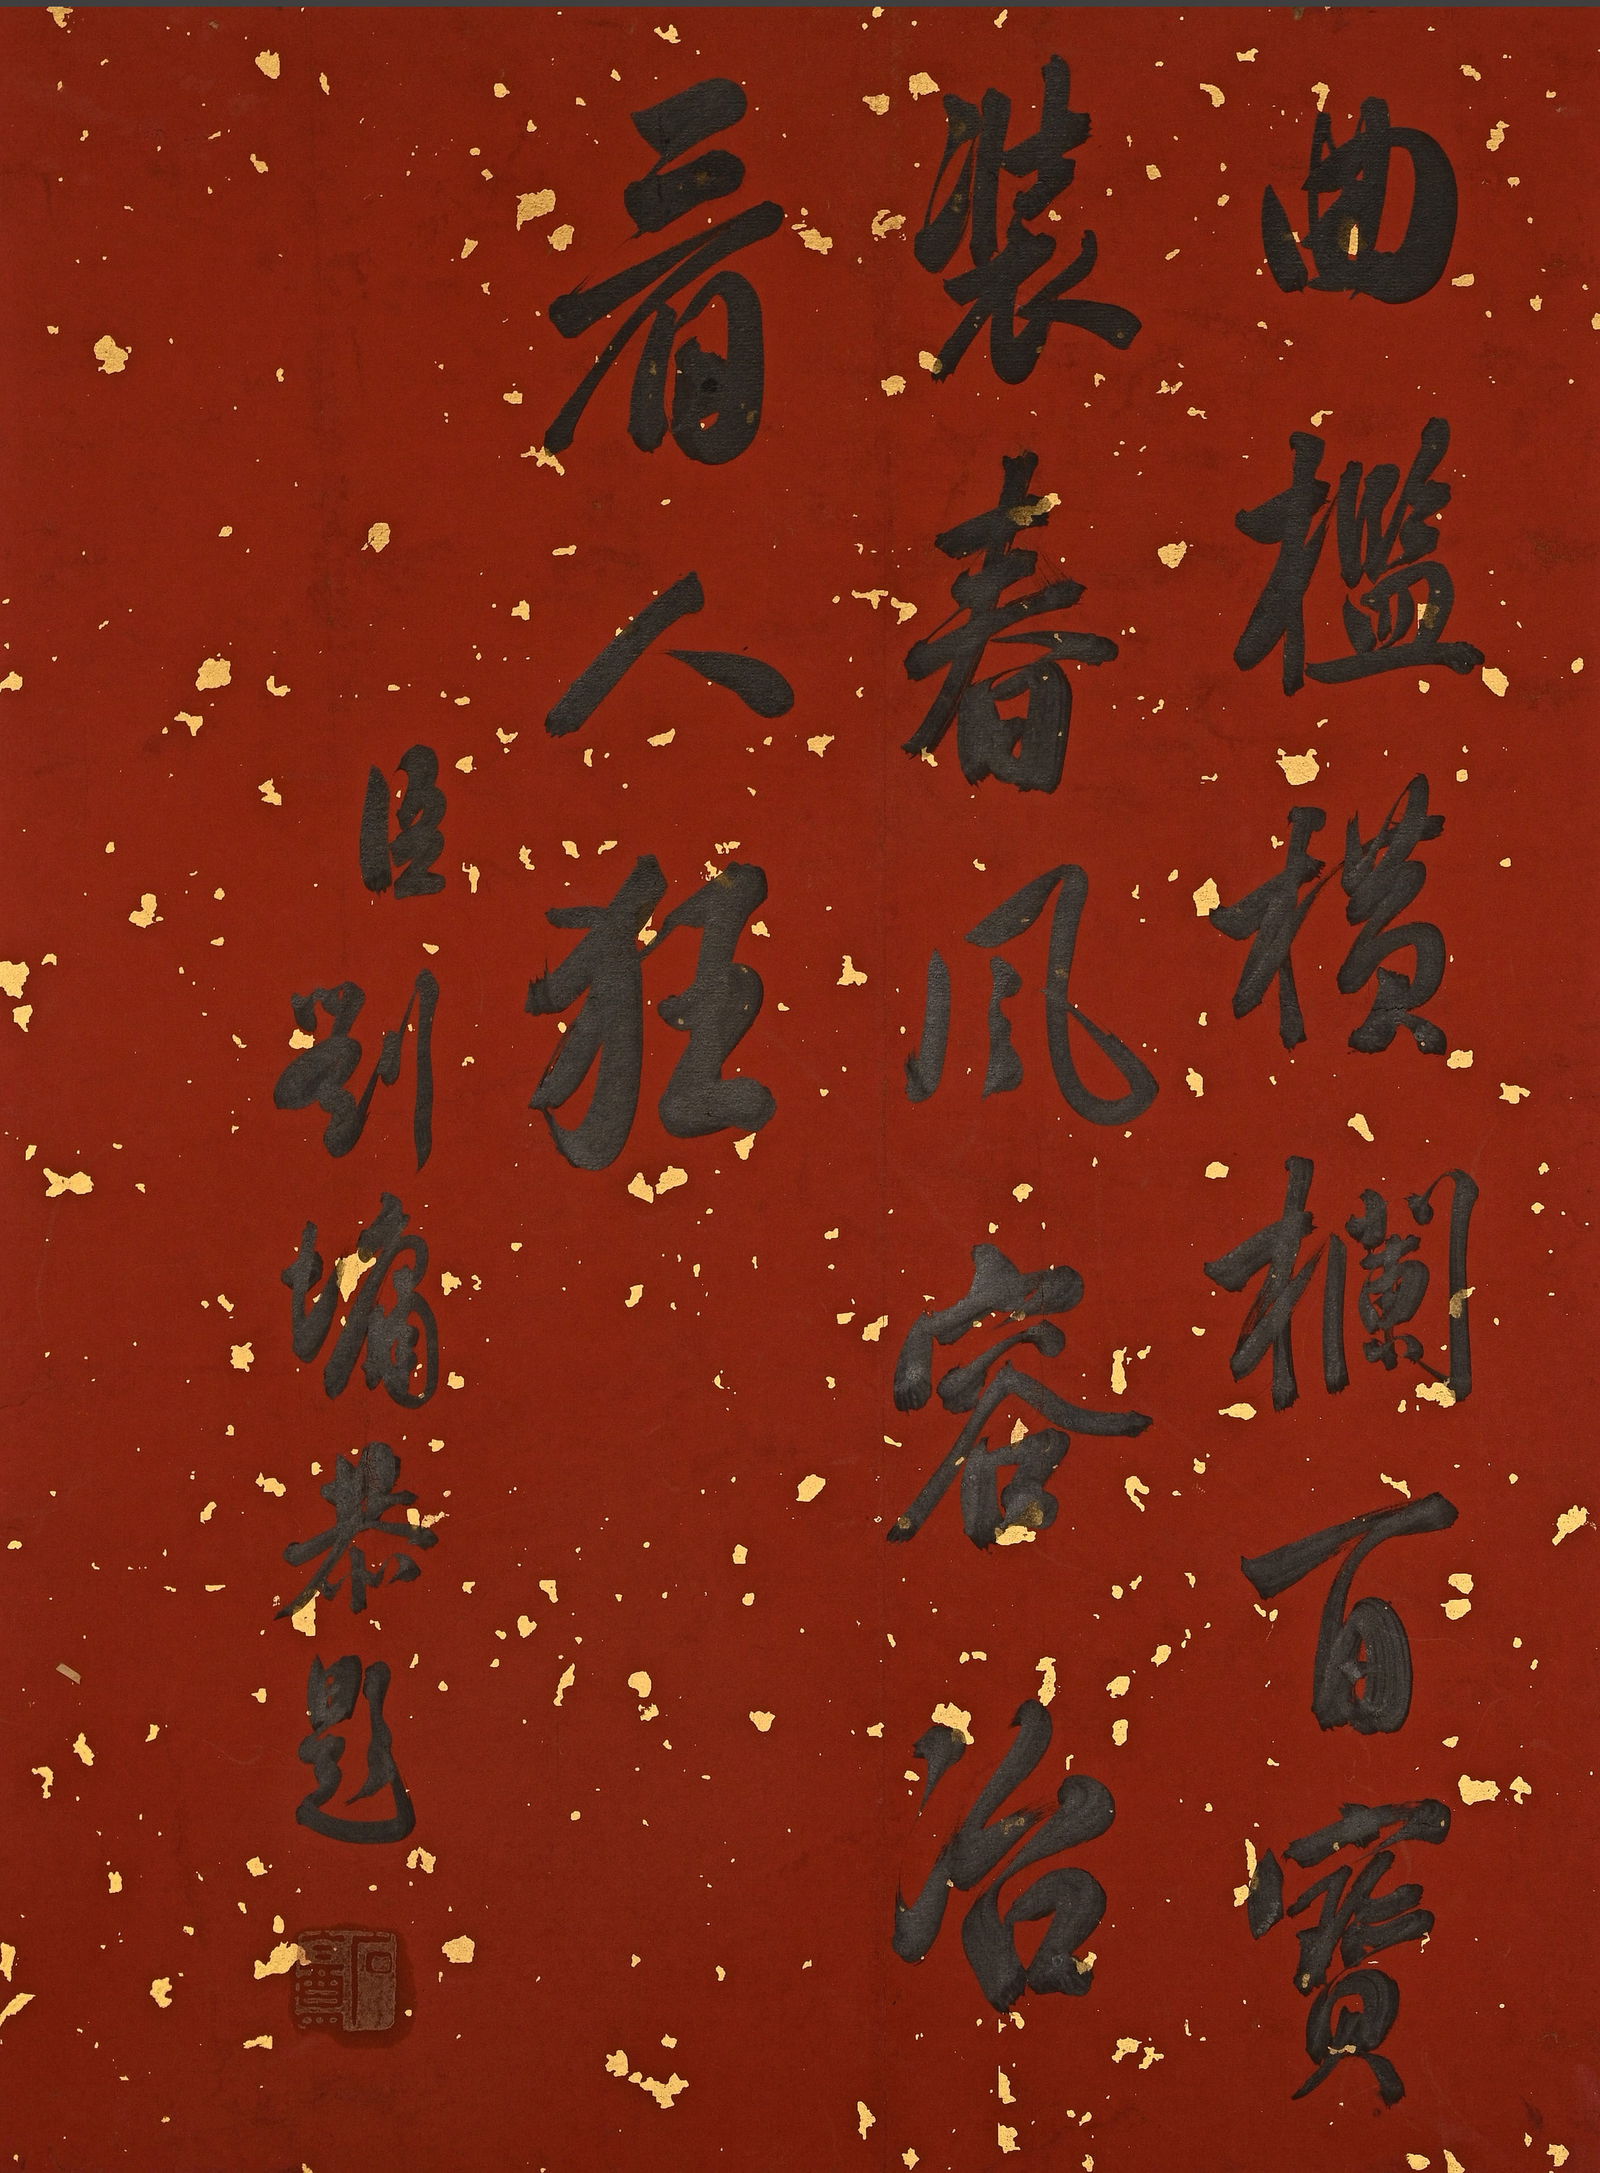 曲檻橫欄百寶
裝春風容冶
看人狂
臣劉墉恭題
石菴